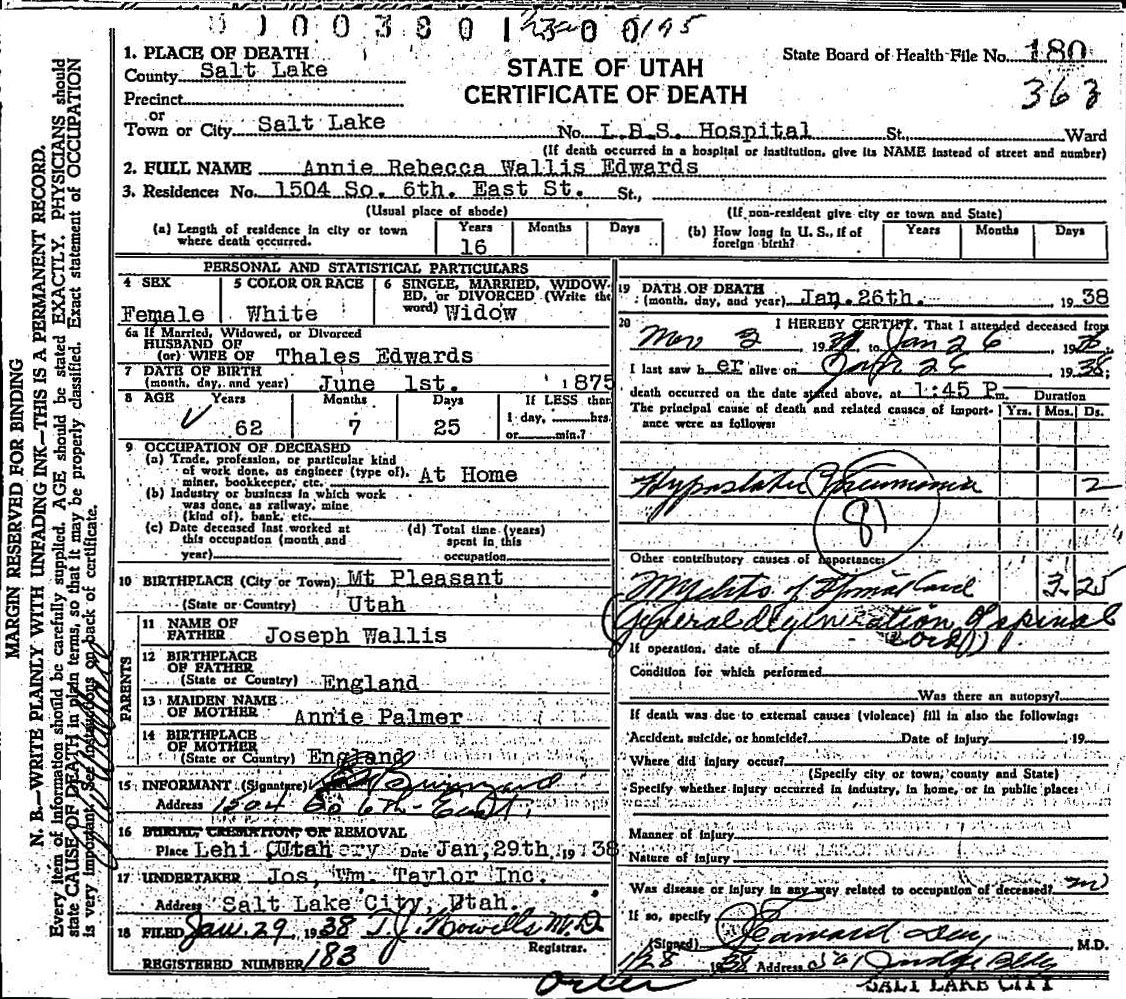 0100380
State Board of Health File No. 180
363
1. PLACE OF DEATH
County Salt Lake
STATE OF UTAH
CERTIFICATE OF DEATH
Precinct
or
Town or City Salt Lake No. L.D.S. Hospital St. Ward
(If death occurred in a hospital or institution, give its NAME instead of street and number)
2. FULL NAME Annie Rebecca Wallis Edwards
3. Residence: No. 1504 So. 6th. East St. St.,
(Usual place of abode) (If non-resident give city or town and State)
(a) Length of residence in city or town where death occurred. Years 16 Months Days
(b) How long in U. S., if of foreign birth? Years Months Days
PERSONAL AND STATISTICAL PARTICULARS
4 SEX Female
5 COLOR OR RACE White
6 SINGLE, MARRIED, WIDOWED, or DIVORCED (Write the word) Widow
6a If Married, Widowed, or Divorced
HUSBAND OF
(or) WIFE OF Thales Edwards
7 DATE OF BIRTH
(month, day, and year) June 1st. 1875
8 AGE Years 62 Months 7 Days 25
If LESS than
1 day, hrs.
or min.?
9 OCCUPATION OF DECEASED
(a) Trade, profession, or particular kind
of work done, as engineer (type of),
miner, bookkeeper, etc. At Home
(b) Industry or business in which work
was done, as railway, mine
(kind of), bank, etc.
(c) Date deceased last worked at
this occupation (month and
year)
(d) Total time (years)
spent in this
occupation
10 BIRTHPLACE (City or Town) Mt Pleasant
(State or Country) Utah
PARENTS
11 NAME OF
FATHER Joseph Wallis
12 BIRTHPLACE
OF FATHER
(State or Country) England
13 MAIDEN NAME
OF MOTHER Annie Palmer
14 BIRTHPLACE
OF MOTHER
(State or Country) England
15 INFORMANT (Signature)
Address 1504 So 6th East
16 BURIAL, CREMATION, OR REMOVAL
Place Lehi Utah Date Jan, 29th, 1938
17 UNDERTAKER Jos, Wm. Taylor Inc.
Address Salt Lake City, Utah.
18 FILED Jan. 29, 1938 T.J. Howells M.D.
Registrar.
REGISTERED NUMBER 183
19 DATE OF DEATH
(month, day, and year) Jan. 26th. 1938
20 I HEREBY CERTIFY, That I attended deceased from
to Jan 26
I last saw her alive on Jan 26 1938;
death occurred on the date stated above, at 1:45 P m.
The principal cause of death and related causes of importance were as follows:
Duration
Yrs. Mos. Ds.
Hypostatic Pneumonia 2
81
Other contributory causes of importance:
Myelitis of Spinal Cord 3 25
(General degeneration of spinal
cord)
If operation, date of
Condition for which performed
Was there an autopsy?
If death was due to external causes (violence) fill in also the following:
Accident, suicide, or homicide? Date of injury 19
Where did injury occur?
(Specify city or town, county and State)
Specify whether injury occurred in industry, in home, or in public place:
Manner of injury
Nature of injury
Was disease or injury in any way related to occupation of deceased? no
If so, specify
(Signed) M.D.
1/28 1938 Address Judge Bldg
SALT LAKE CITY
MARGIN RESERVED FOR BINDING
N. B.—WRITE PLAINLY WITH UNFADING INK—THIS IS A PERMANENT RECORD.
Every item of information should be carefully supplied. AGE should be stated EXACTLY. PHYSICIANS should
state CAUSE OF DEATH in plain terms, so that it may be properly classified. Exact statement of OCCUPATION
is very important. See instructions on back of certificate.